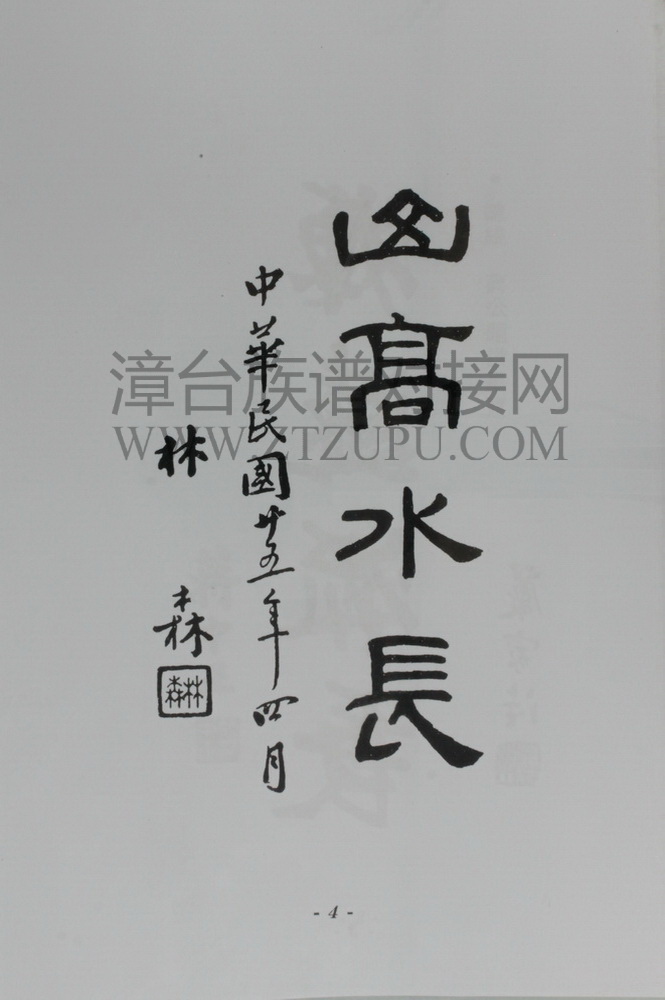 山高水長
中華民國廿五年四月
林森
林森
漳台族谱对接网
WWW.ZTZUPU.COM
- 4 -